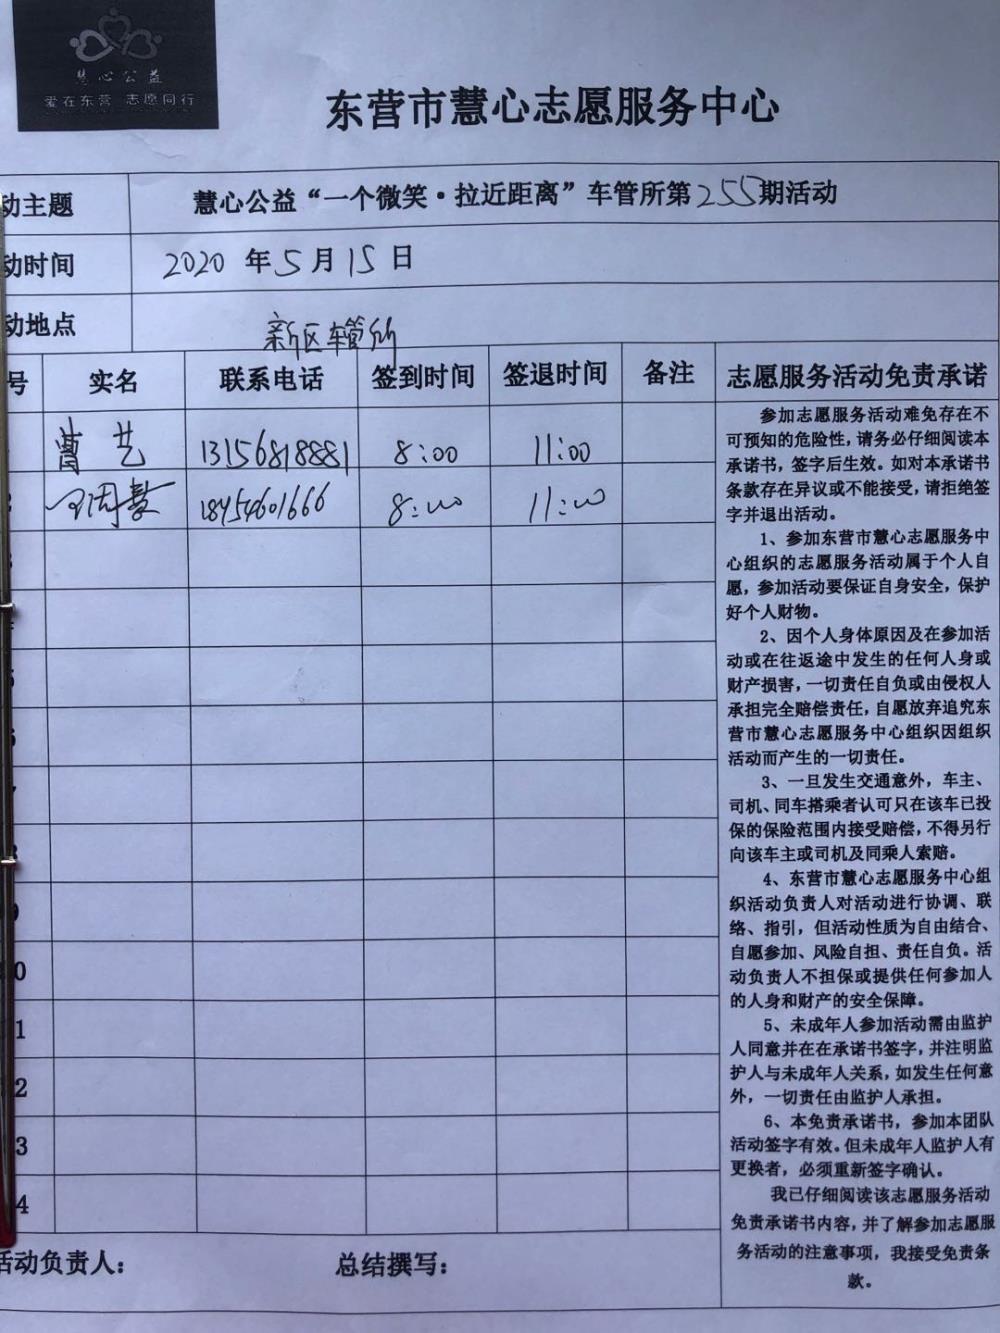 慧心公益
爱在东营 志愿同行
东营市慧心志愿服务中心
动主题 慧心公益“一个微笑·拉近距离”车管所第255期活动
动时间 2020 年 5 月 15 日
动地点 新区车管所
号 实名 联系电话 签到时间 签退时间 备注 志愿服务活动免责承诺
艺 13156818881 8:00 11:00
18454601666 8:00 11:00
0
1
2
3
4
参加志愿服务活动难免存在不
可预知的危险性，请务必仔细阅读本
承诺书，签字后生效。如对本承诺书
条款存在异议或不能接受，请拒绝签
字并退出活动。
1、参加东营市慧心志愿服务中
心组织的志愿服务活动属于个人自
愿，参加活动要保证自身安全，保护
好个人财物。
2、因个人身体原因及在参加活
动或在往返途中发生的任何人身或
财产损害，一切责任自负或由侵权人
承担完全赔偿责任，自愿放弃追究东
营市慧心志愿服务中心组织因组织
活动而产生的一切责任。
3、一旦发生交通意外，车主、
司机、同车搭乘者认可只在该车已投
保的保险范围内接受赔偿，不得另行
向该车主或司机及同乘人索赔。
4、东营市慧心志愿服务中心组
织活动负责人对活动进行协调、联
络、指引，但活动性质为自由结合、
自愿参加、风险自担、责任自负。活
动负责人不担保或提供任何参加人
的人身和财产的安全保障。
5、未成年人参加活动需由监护
人同意并在在承诺书签字，并注明监
护人与未成年人关系，如发生任何意
外，一切责任由监护人承担。
6、本免责承诺书，参加本团队
活动签字有效。但未成年人监护人有
更换者，必须重新签字确认。
我已仔细阅读该志愿服务活动
免责承诺书内容，并了解参加志愿服
务活动的注意事项，我接受免责条
款。
活动负责人： 总结撰写：